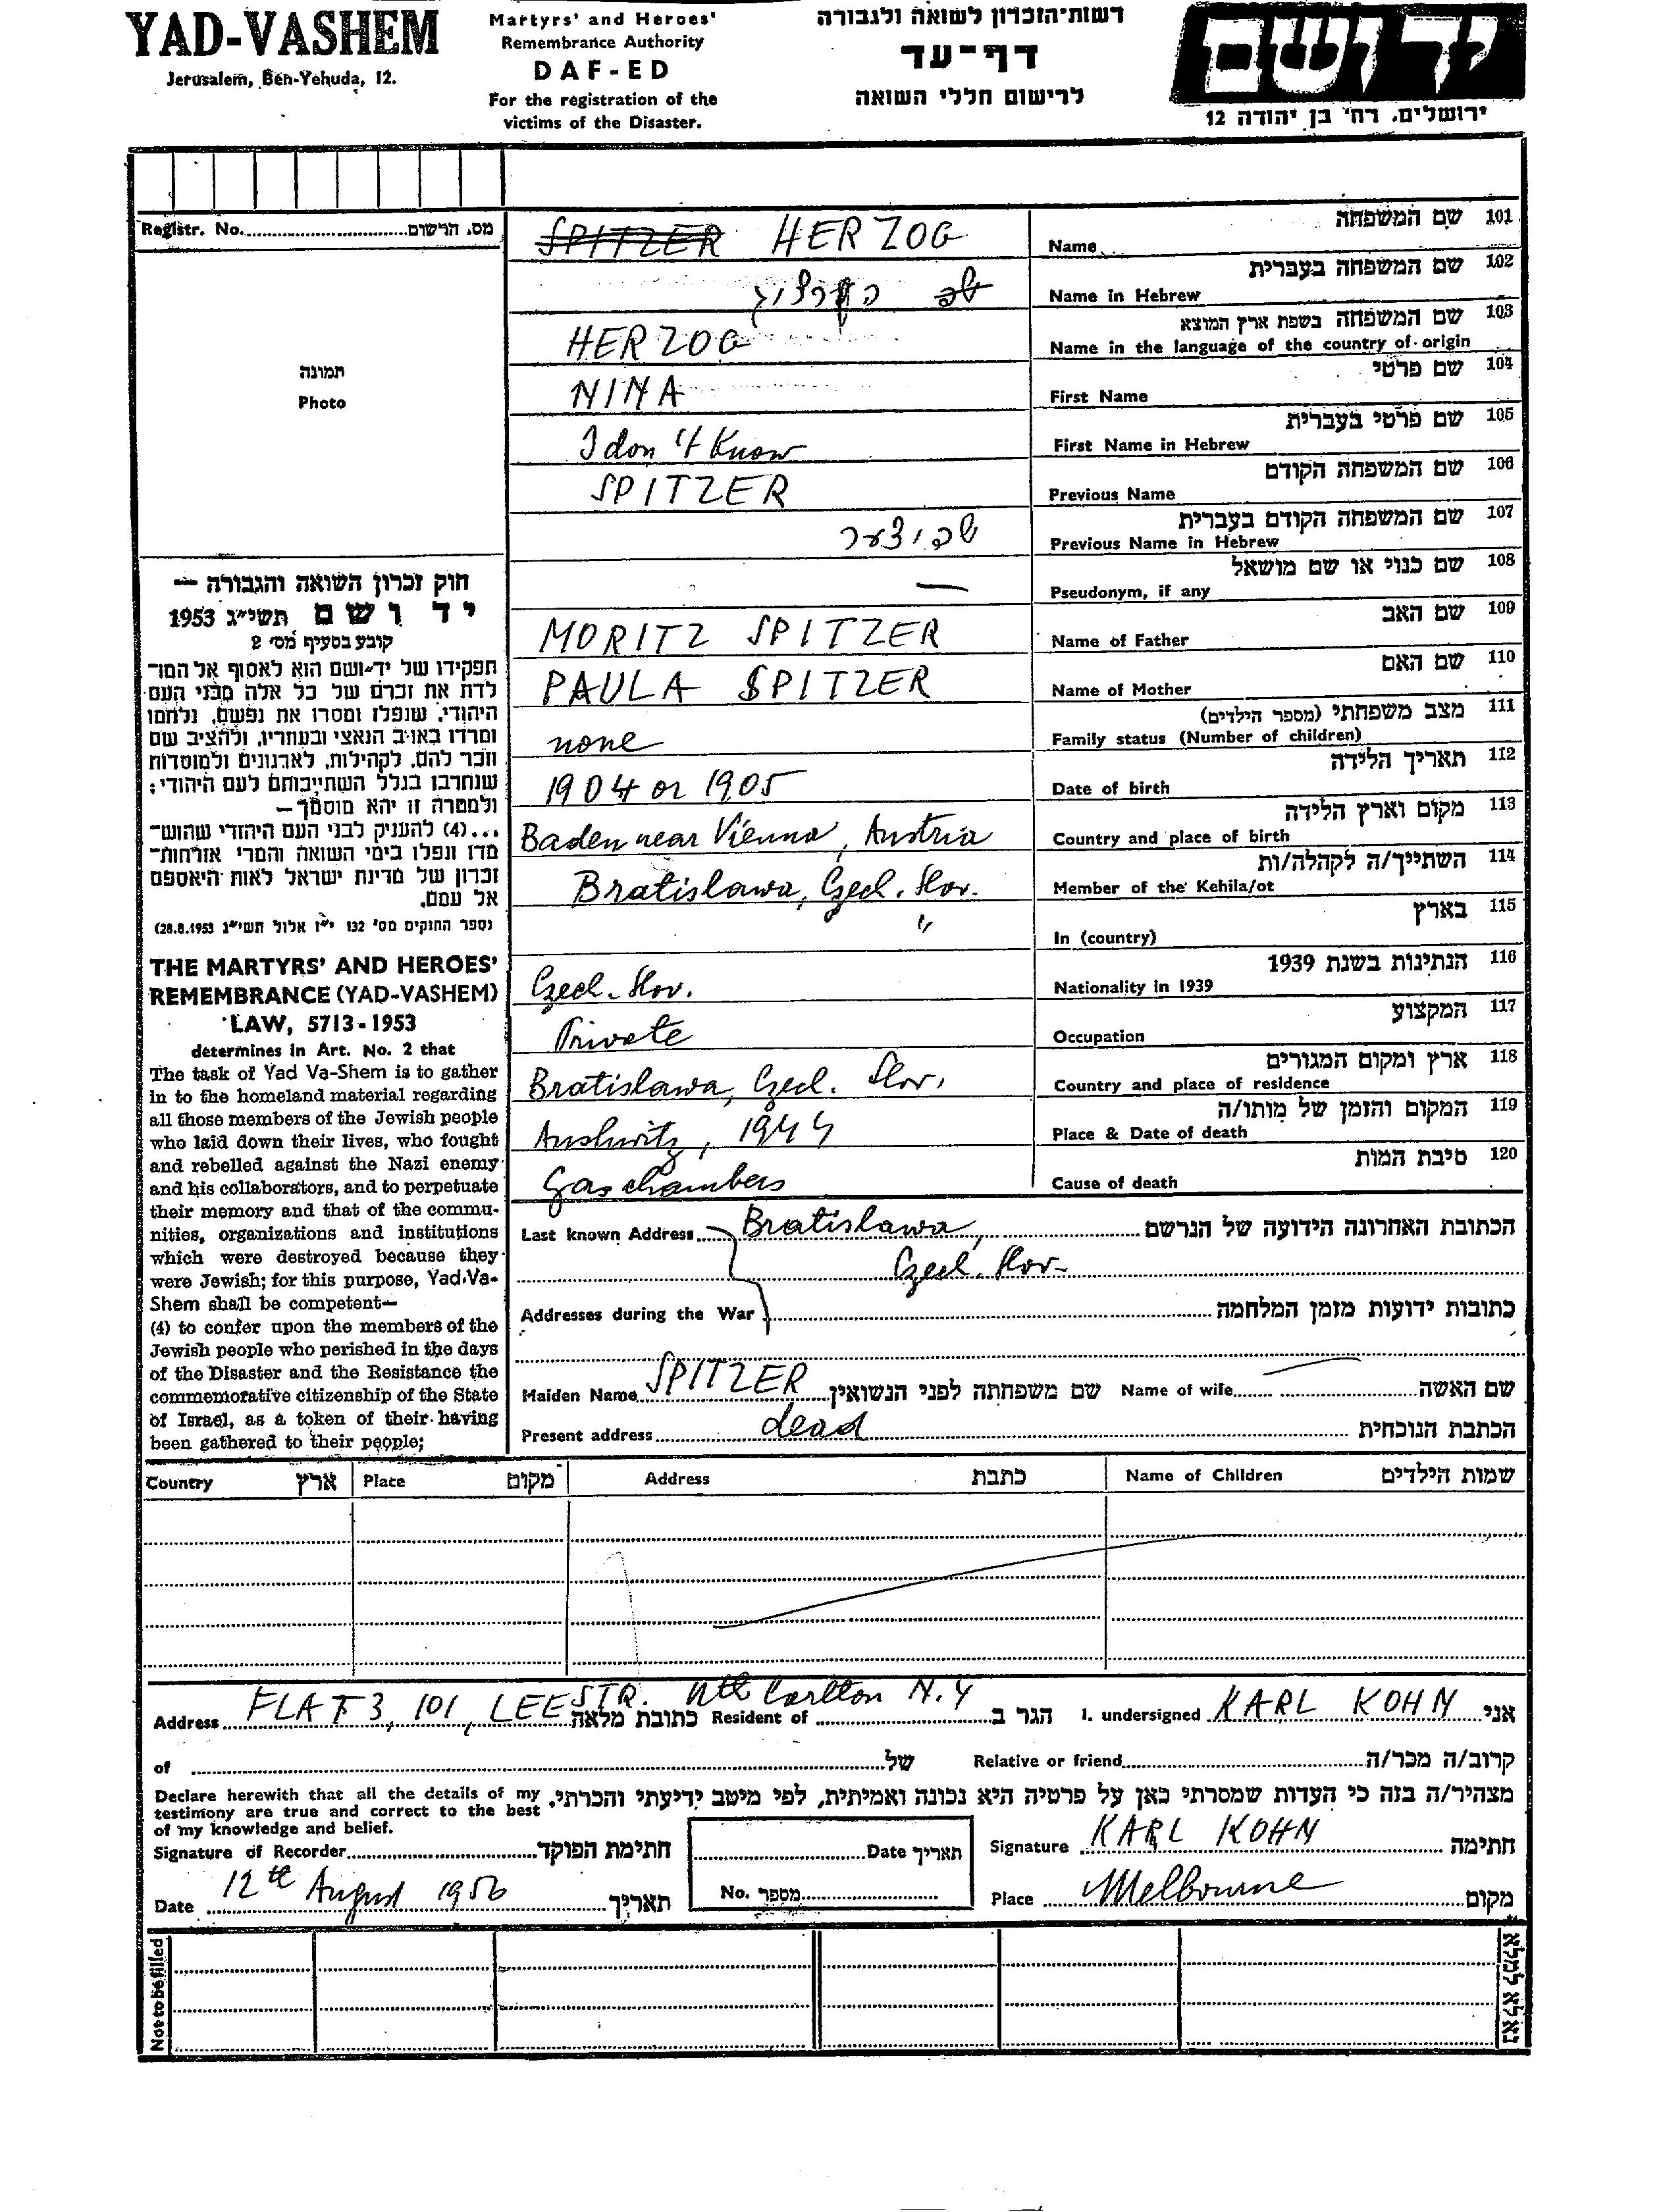 YAD-VASHEM
Jerusalem, Ben-Yehuda, 12.
Martyrs' and Heroes'
Remembrance Authority
DAF-ED
For the registration of the
victims of the Disaster.
רשות-הזכרון לשואה ולגבורה
דף-עד
לרישום חללי השואה
יד ושם
ירושלים, רח' בן יהודה 12
Registr. No. מס. הרישום
תמונה
Photo
חוק זכרון השואה והגבורה —
יד ושם תשי"ג 1953
קובע בסעיף מס' 2
תפקידו של יד-ושם הוא לאסוף אל המו־
לדת את זכרם של כל אלה מבני העם
היהודי, שנפלו ומסרו את נפשם, נלחמו
ומרדו באויב הנאצי ובעוזריו, ולהציב שם
וזכר להם, לקהילות, לארגונים ולמוסדות
שנחרבו בגלל השתייכותם לעם היהודי;
ולמטרה זו יהא מוסמך —
...(4) להעניק לבני העם היהודי שהוש־
מדו ונפלו בימי השואה והמרי אזרחות־
זכרון של מדינת ישראל לאות היאספם
אל עמם.
(ספר החוקים מס' 132 י"ז אלול תשי"ג 28.8.1953)
THE MARTYRS' AND HEROES'
REMEMBRANCE (YAD-VASHEM)
LAW, 5713-1953
determines in Art. No. 2 that
The task of Yad Va-Shem is to gather
in to the homeland material regarding
all those members of the Jewish people
who laid down their lives, who fought
and rebelled against the Nazi enemy
and his collaborators, and to perpetuate
their memory and that of the commu-
nities, organizations and institutions
which were destroyed because they
were Jewish; for this purpose, Yad-Va-
Shem shall be competent—
(4) to confer upon the members of the
Jewish people who perished in the days
of the Disaster and the Resistance the
commemorative citizenship of the State
of Israel, as a token of their having
been gathered to their people;
SPITZER HERZOG Name שם המשפחה 101
הערצוג Name in Hebrew שם המשפחה בעברית 102
HERZOG Name in the language of the country of origin שם המשפחה בשפת ארץ המוצא 103
NINA First Name שם פרטי 104
I don't Know First Name in Hebrew שם פרטי בעברית 105
SPITZER Previous Name שם המשפחה הקודם 106
שפיצער Previous Name in Hebrew שם המשפחה הקודם בעברית 107
— Pseudonym, if any שם כנוי או שם מושאל 108
MORITZ SPITZER Name of Father שם האב 109
PAULA SPITZER Name of Mother שם האם 110
none Family status (Number of children) מצב משפחתי (מספר הילדים) 111
1904 or 1905 Date of birth תאריך הלידה 112
Baden near Vienna, Austria Country and place of birth מקום וארץ הלידה 113
Bratislawa, Czech. Slov. Member of the Kehila/ot השתייך/ה לקהלה/ות 114
" In (country) בארץ 115
Czech. Slov. Nationality in 1939 הנתינות בשנת 1939 116
Private Occupation המקצוע 117
Bratislawa, Czech. Slov. Country and place of residence ארץ ומקום המגורים 118
Aushwitz, 1944 Place & Date of death המקום והזמן של מותו/ה 119
Gas chambers Cause of death סיבת המות 120
Last known Address Bratislawa, הכתובת האחרונה הידועה של הנרשם
Czech. Slov.
Addresses during the War כתובות ידועות מזמן המלחמה
Maiden Name SPITZER שם משפחתה לפני הנשואין Name of wife — שם האשה
Present address dead הכתבת הנוכחית
Country ארץ Place מקום Address כתבת Name of Children שמות הילדים
Address FLAT 3, 101, LEE STR. כתובת מלאה Resident of Nth Carlton N.4 הגר ב I. undersigned KARL KOHN אני
of של Relative or friend קרוב/ה מכר/ה
Declare herewith that all the details of my
testimony are true and correct to the best
of my knowledge and belief.
מצהיר/ה בזה כי העדות שמסרתי כאן על פרטיה היא נכונה ואמיתית, לפי מיטב ידיעתי והכרתי.
Signature of Recorder חתימת הפוקד Date תאריך Signature KARL KOHN חתימה
Date 12th August 1956 תאריך No. מספר Place Melbourne מקום
Not to be filled
נא לא למלא